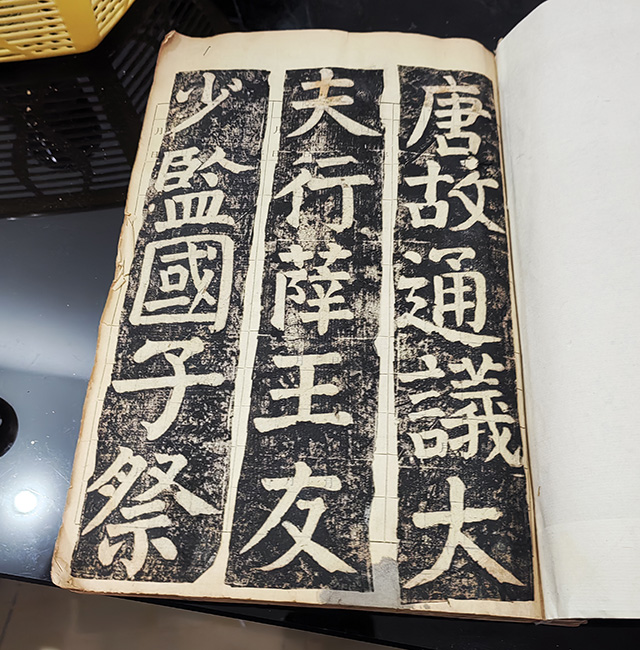 唐故通議大
夫行薛王友
少監國子祭